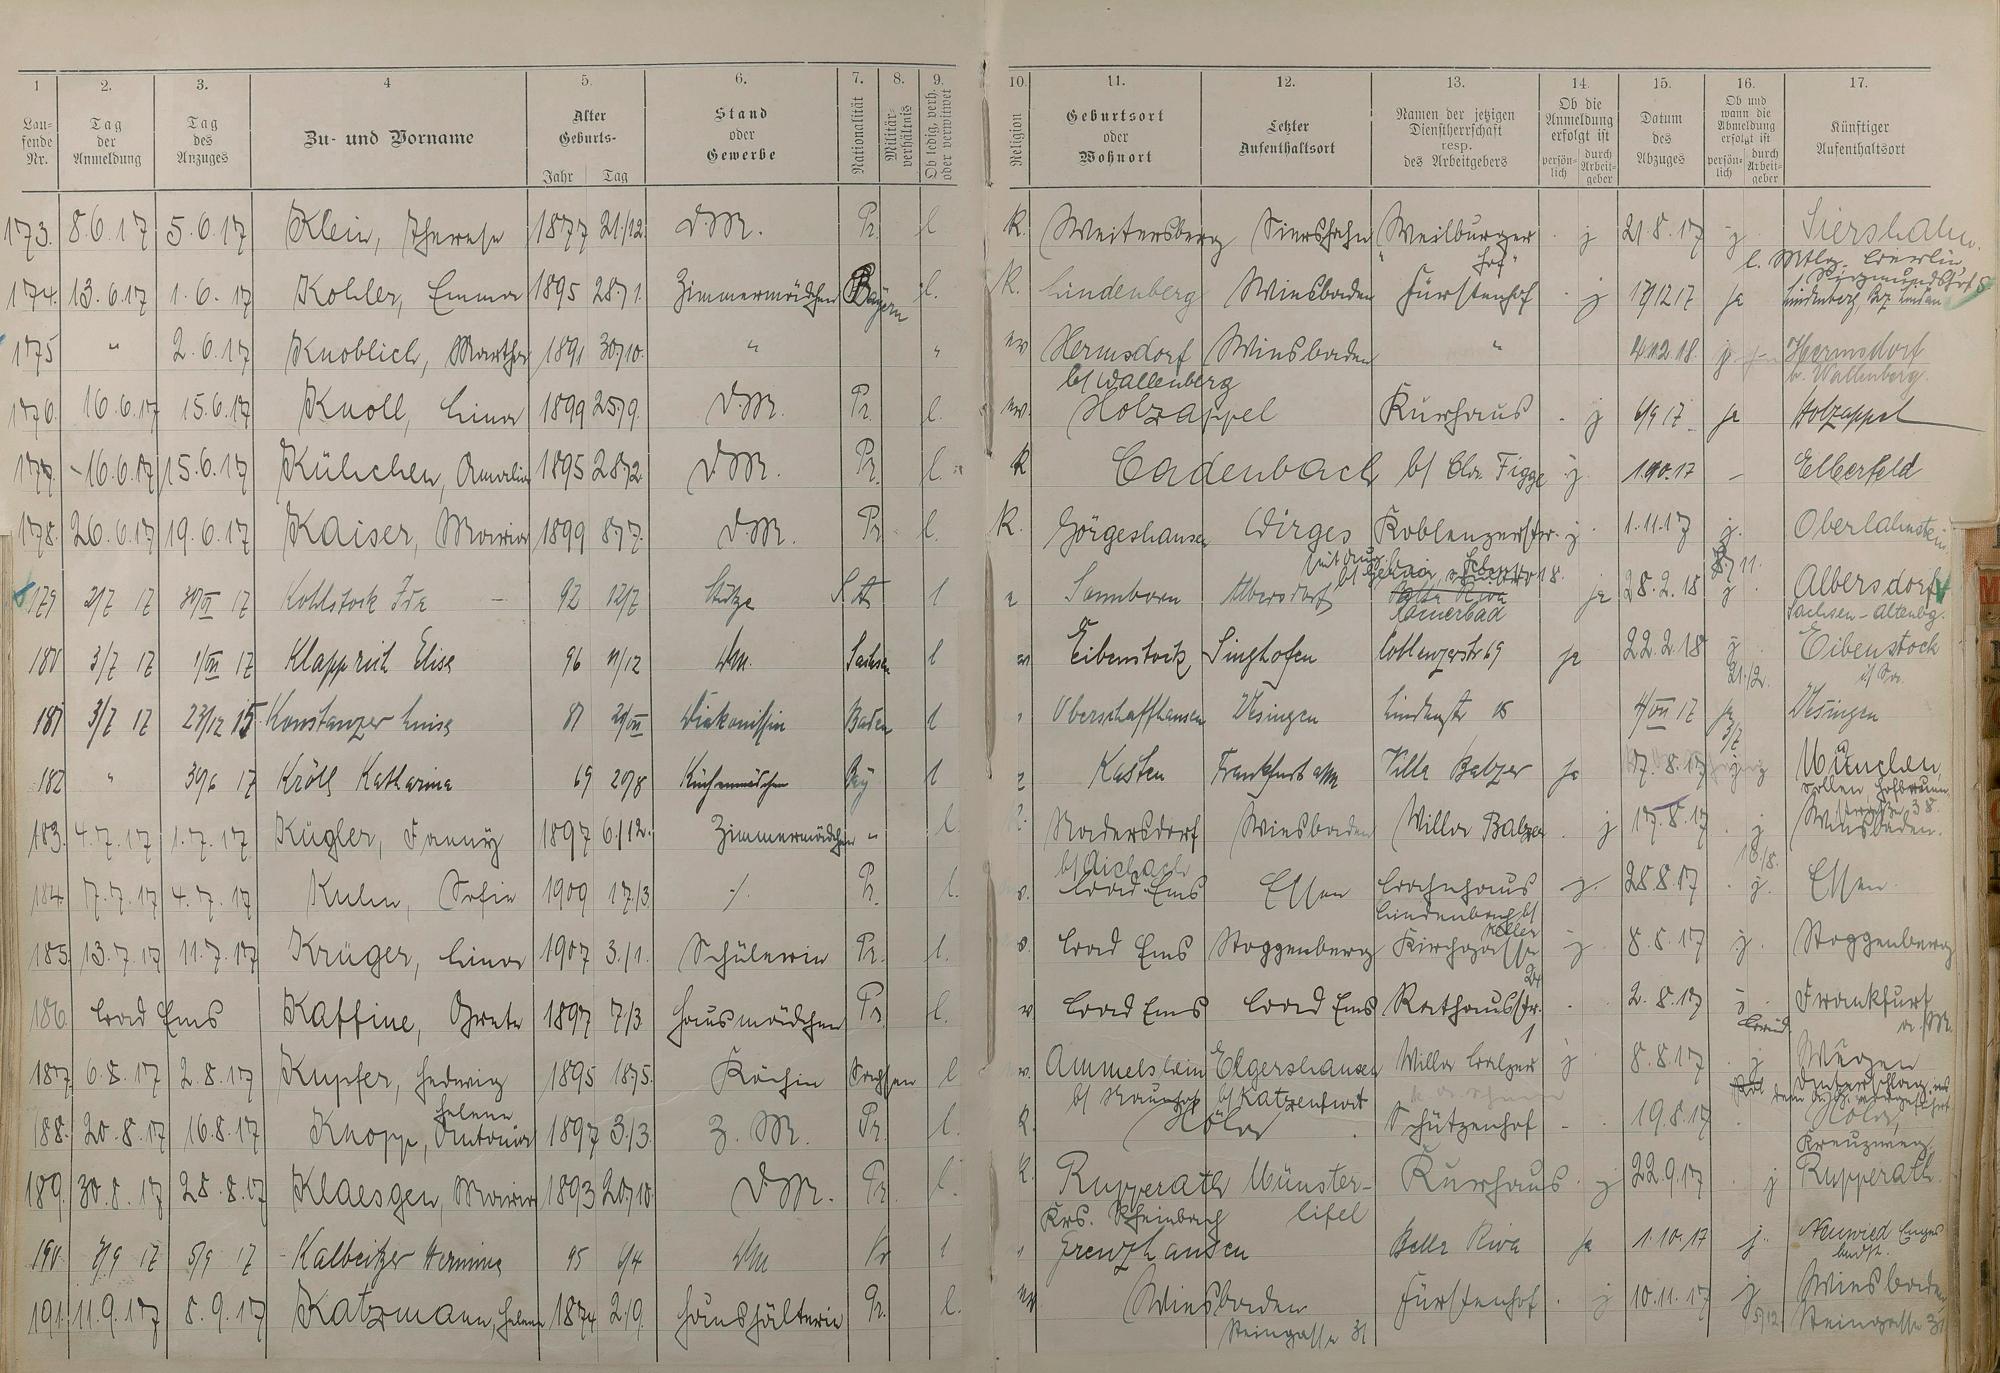 1 2. 3. 4 5. 6. 7. 8. 9. 10. 11. 12. 13. 14. 15. 16. 17.
Lau-
fende
Nr.
Tag
der
Anmeldung
Tag
des
Anzuges
Zu- und Vorname
Alter
Geburts-
Jahr Tag
Stand
oder
Gewerbe
Nationalität
Militär-
verhältnis
Ob ledig, verh.
oder verwitwet
Religion
Geburtsort
oder
Wohnort
Letzter
Aufenthaltsort
Namen der jetzigen
Dienstherrschaft
resp.
des Arbeitgebers
Ob die
Anmeldung
erfolgt ist
persön-
lich
durch
Arbeit-
geber
Datum
des
Abzuges
Ob und
wann die
Abmeldung
erfolgt ist
persön-
lich
durch
Arbeit-
geber
Künftiger
Aufenthaltsort
173. 8.6.17 5.6.17 Klein, Therese 1877 21/12. D.M. Pr. l K. Weitersberg Siershahn "Weilburger j 21.8.17 j Siershahn.
Hof"
174. 13.6.17 1.6.17 Kohler, Emma 1895 28/1. Zimmermädchen Bayern l. K. Lindenberg Wiesbaden Fürstenhof j 17/12 17 ja Lindenberg
175 " 2.6.17 Knoblich, Martha 1891 30/10. " " ev Hermsdorf Wiesbaden " j Hermsdorf
b/ Wallenberg b. Wallenberg.
176. 16.6.17 15.6.17 Knoll, Lina 1899 25/9. D.M. Pr. l. ev. Holzappel Kurhaus j 6/9 17 ja Holzappel
177. 16.6.17 15.6.17 Külichen, Amalie 1895 28/2. D.M. Pr. l. K Cadenbach b/ Chr. Figge j. 1.10.17 – Elberfeld
178. 26.6.17 19.6.17 Kaiser, Maria 1899 8/7. D.M. Pr l. K. Görgeshausen Wirges Koblenzerstr. j 1.11.17 j. Oberlahnstein
179 2/7 17 17 Kohlstock Ida 92 12/7 Stütze l Albersdorf ja 28.2.18 j Albersdorf
Römerbad Sachsen-Altenbg.
180 3/7 17 1/VII 17 Klapprich Elise 96 11/12 DM. Sachsen l Eibenstock, Singhofen Coblenzerstr 69 ja 22.2.18 j Eibenstock
21./2. i/ Sa.
181 3/7 17 23/12 15 Konstanzer Luise 81 Diakonissin Baden l Oberschaffhausen Usingen Lindenstr 4/VII 17 ja Usingen
3/7
182 " 30/6 17 Kröll Katharina 69 20/8 Küchenmädchen Bay l Kasten Frankfurt a/M Villa Balzer ja 17.8.17 j München,
183. 4.7.17 1.7.17 Kügler, Fanny 1897 6./12. Zimmermädchen " l. Wiesbaden Villa Balzer j 17.8.17 j Wiesbaden.
b/ Aichach 18./8.
184. 7.7.17 4.7.17 Kuhn, Sofie 1909 17./3 ./. Pr. l. Bad Ems Essen j. 28.8.17 j. Essen.
185. 13.7.17 11.7.17 Krüger, Lina 1907 3./1. Schülerin Pr. l. Bad Ems Roggenberg Kirchgasse j 8.8.17 j. Roggenberg
24
186. Bad Ems Kaffine, Grete 1897 7/3. Hausmädchen Pr. l. ev Bad Ems Bad Ems Rathausstr. 2.8.17 j Frankfurt
1 a. M.
187. 6.8.17 2.8.17 Kupfer, Hedwig 1895 18/5. Köchin Sachsen l Ammelshain Elgershausen Villa Balzer j 8.8.17 j Wurzen
b/ Naunhof b/ Katzenfurt
Helene
188. 20.8.17 16.8.17 Knopp, Antonia 1897 3./3. Z. M. Pr. l. K. Höhr Schützenhof - . 19.8.17 Höhr,
189. 30.8.17 28.8.17 Klaesgen, Maria 1893 20/10. D.M. Pr. l. K. Rupperath Münster- Kurhaus j 22.9.17 j Rupperath.
Krs. Rheinbach Eifel
190. 7/9 17 5/9 17 Kalbeitzer Hermine 95 6/4 DM Pr l Grenzhausen Bella Riva ja 1.10.17 j. Neuwied
191. 11.9.17 8.9.17 Katzmann, Helene 1874 2./9. Haushälterin Pr. l. ev Wiesbaden Fürstenhof j 10.11.17 j Wiesbaden,
Steingasse 31 5/12. Steingasse 31